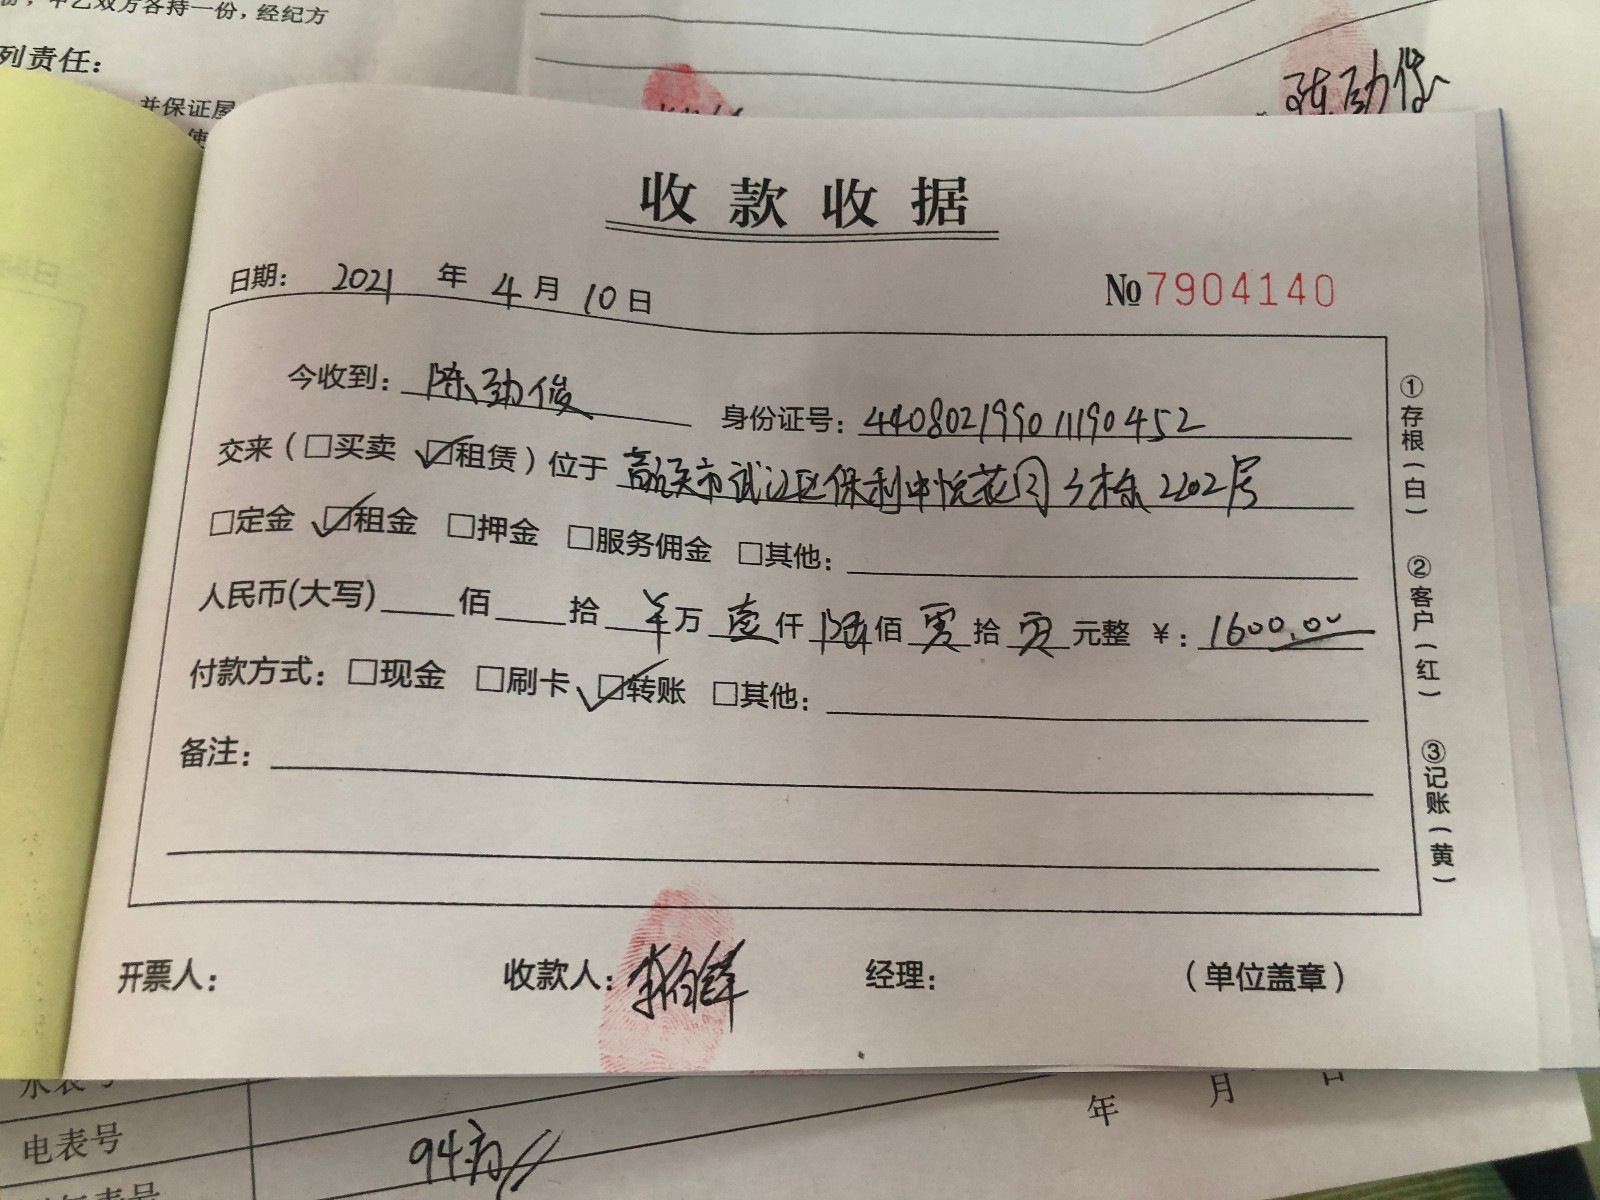 份，甲乙双方各持一份，经纪方
列责任：
并保证屋
使
陈劲俊
收款收据
日期： 2021 年 4 月 10 日 № 7904140
今收到： 陈劲俊 身份证号： 440802199011190452
交来（□买卖 ☑租赁）位于 市武江区保利中悦花园 栋 2202号
□定金 ☑租金 □押金 □服务佣金 □其他：
人民币(大写) 佰 拾 万 壹 仟 陆 佰 零 拾 零 元整 ￥： 1600.00
付款方式： □现金 □刷卡 ☑转账 □其他：
备注：
开票人： 收款人： 经理： （单位盖章）
①存根(白) ②客户(红) ③记账(黄)
水表号
年 月 日
电表号